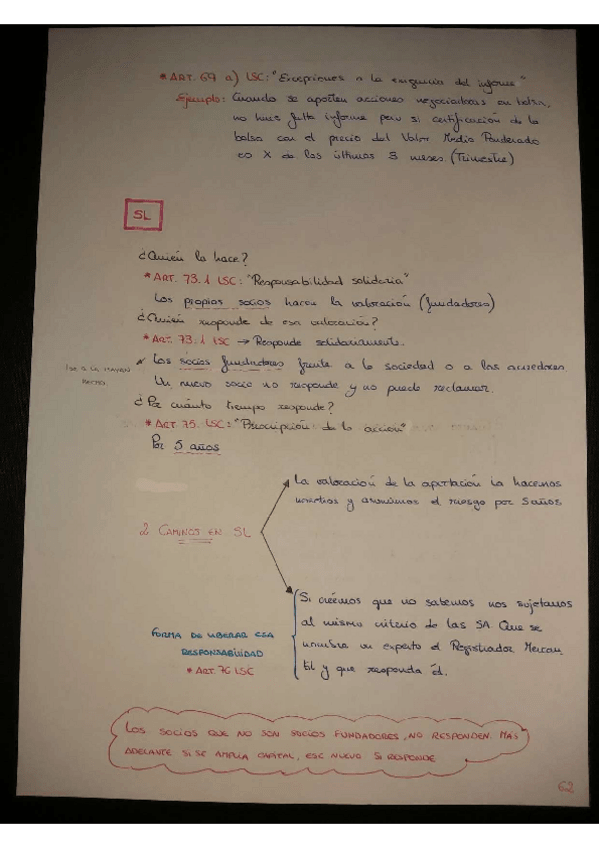 * ART. 67 a) LSC: "Excepciones a la exigencia del informe"
Ejemplo: Cuando se aporten acciones negociadoras en bolsa,
no hace falta informe pero si certificación de la
bolsa con el precio del Valor Medio Ponderado
en X de los últimos 3 meses. (Trimestre)
SL
¿Quién la hace?
* ART. 73.1 LSC: "Responsabilidad solidaria"
Los propios socios harán la valoración (fundadores)
¿Quién responde de esa valoración?
* ART. 73.1 LSC → Responde solidariamente.
* Los socios fundadores frente a la sociedad o a los acreedores
Un nuevo socio no responde y no puede reclamar.
¿Por cuánto tiempo responde?
* ART. 75. LSC: "Prescripción de la acción"
Por 5 años
La valoración de la aportación la hacemos
nosotros y asumimos el riesgo por 5 años
2 CAMINOS EN SL
Si creemos que no sabemos nos sujetamos
al mismo criterio de las SA. Que se
nombra un experto el Registrador Mercan
til y que responda él.
FORMA DE LIBERAR ESA
RESPONSABILIDAD
* ART. 76 LSC
LOS SOCIOS QUE NO SON SOCIOS FUNDADORES, NO RESPONDEN. MAS
ADELANTE SI SE AMPLIA CAPITAL, ESE NUEVO SI RESPONDE
62